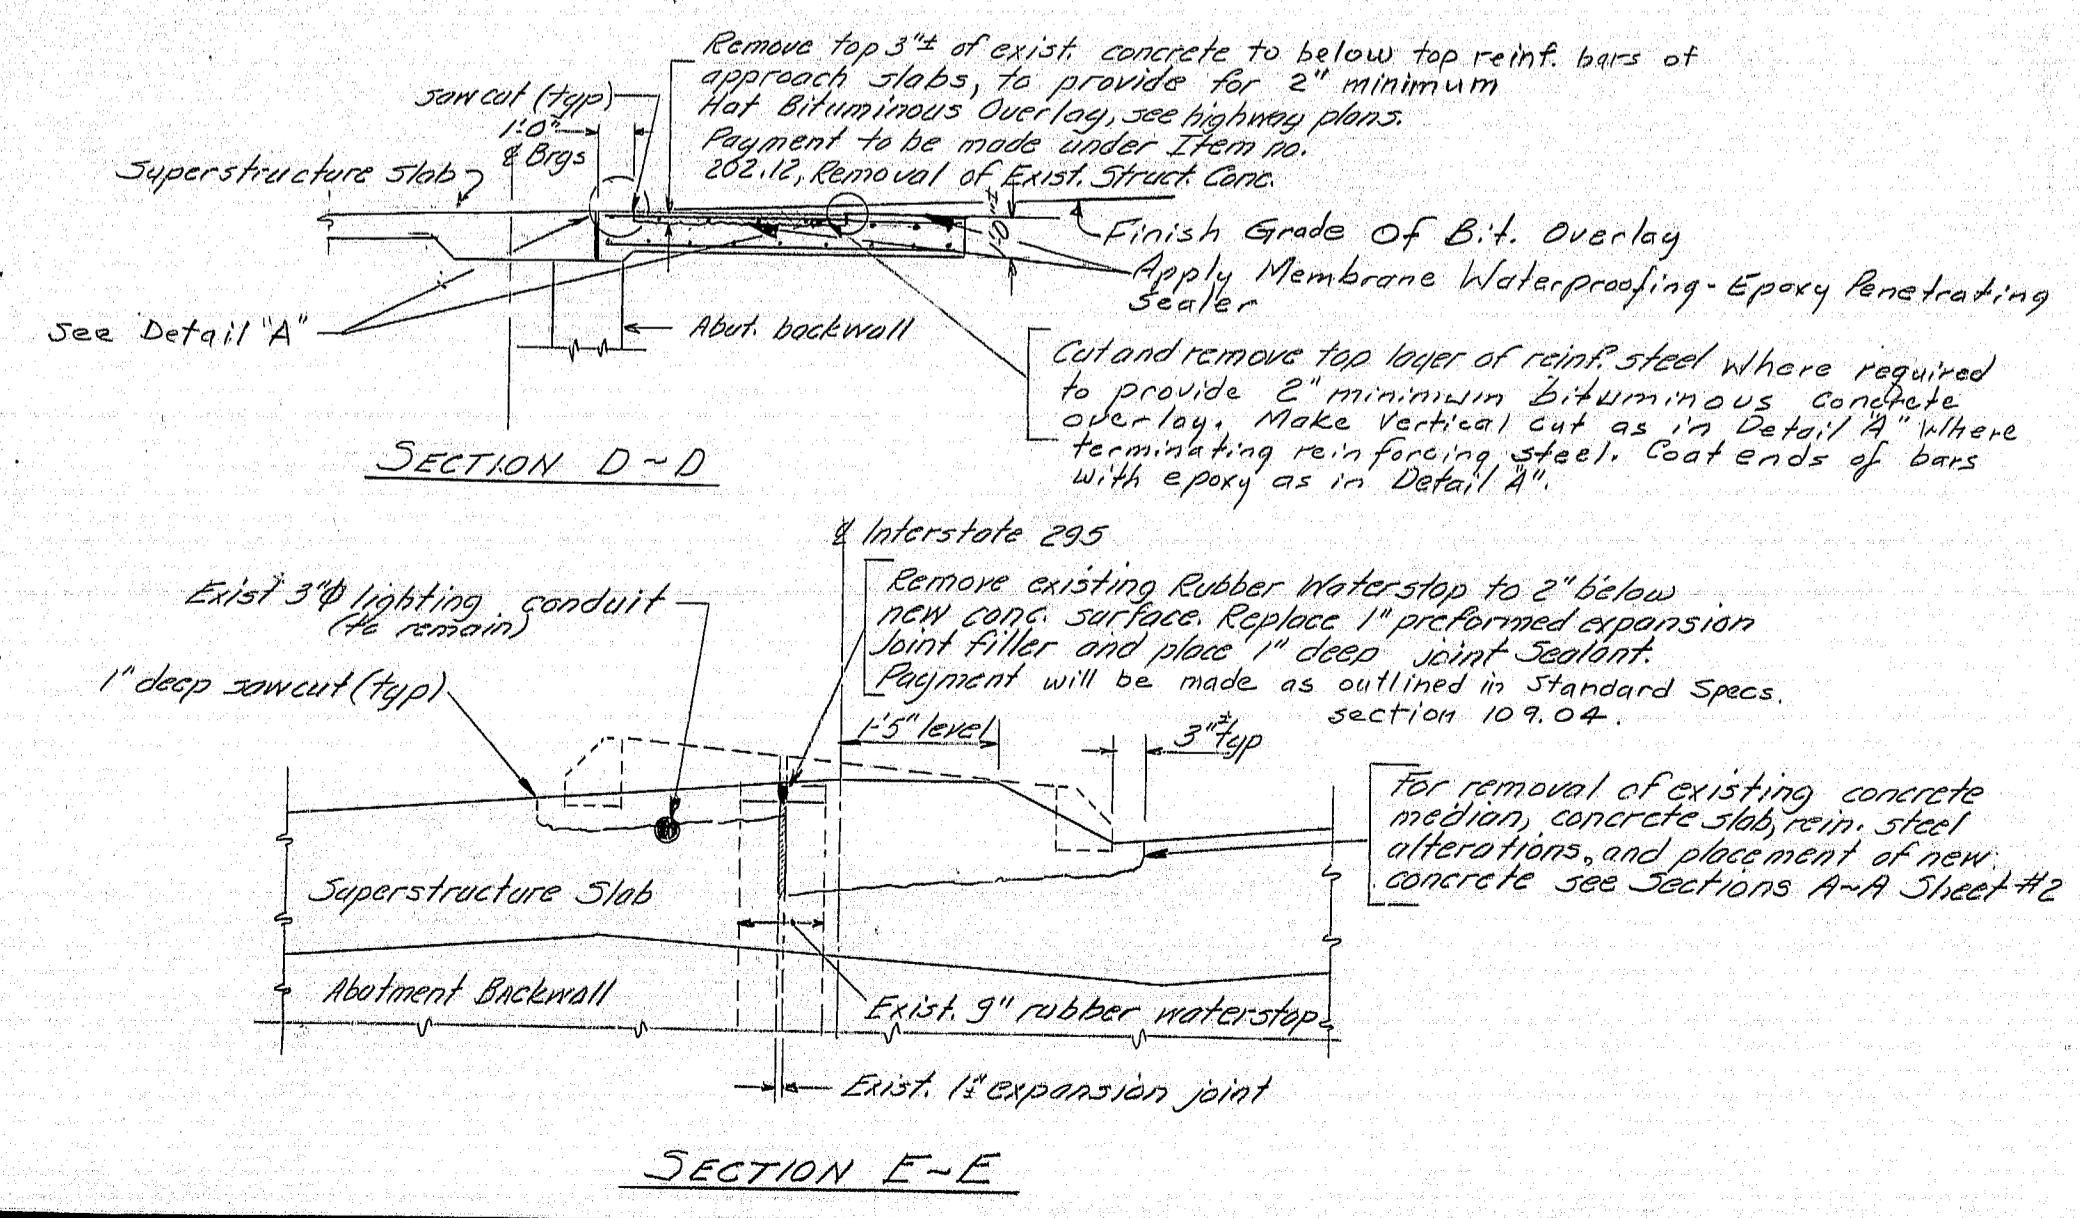 Remove top 3"± of exist. concrete to below top reinf. bars of
approach slabs, to provide for 2" minimum
Hot Bituminous Overlay, see highway plans.
Payment to be made under Item no.
202.12, Removal of Exist. Struct. Conc.
sawcut (typ)
1'-0"
℄ Brgs
Superstructure Slab
1'-0"±
Finish Grade Of Bit. Overlay
Apply Membrane Waterproofing - Epoxy Penetrating
Sealer
See Detail "A"
Abut. backwall
Cut and remove top layer of reinf. steel where required
to provide 2" minimum bituminous concrete
overlay. Make Vertical cut as in Detail "A" Where
terminating reinforcing steel. Coat ends of bars
with epoxy as in Detail "A".
SECTION D~D
℄ Interstate 295
Remove existing Rubber Waterstop to 2" below
new conc. surface. Replace 1" preformed expansion
Joint filler and place 1" deep joint Sealant.
Payment will be made as outlined in Standard Specs.
section 109.04.
Exist 3"Φ lighting conduit
(to remain)
1" deep sawcut (typ)
1'-5" level
3"± typ
For removal of existing concrete
median, concrete slab, rein. steel
alterations, and placement of new
concrete see Sections A~A Sheet #2
Superstructure Slab
Abutment Backwall
Exist. 9" rubber waterstop
Exist. 1"± expansion joint
SECTION E~E